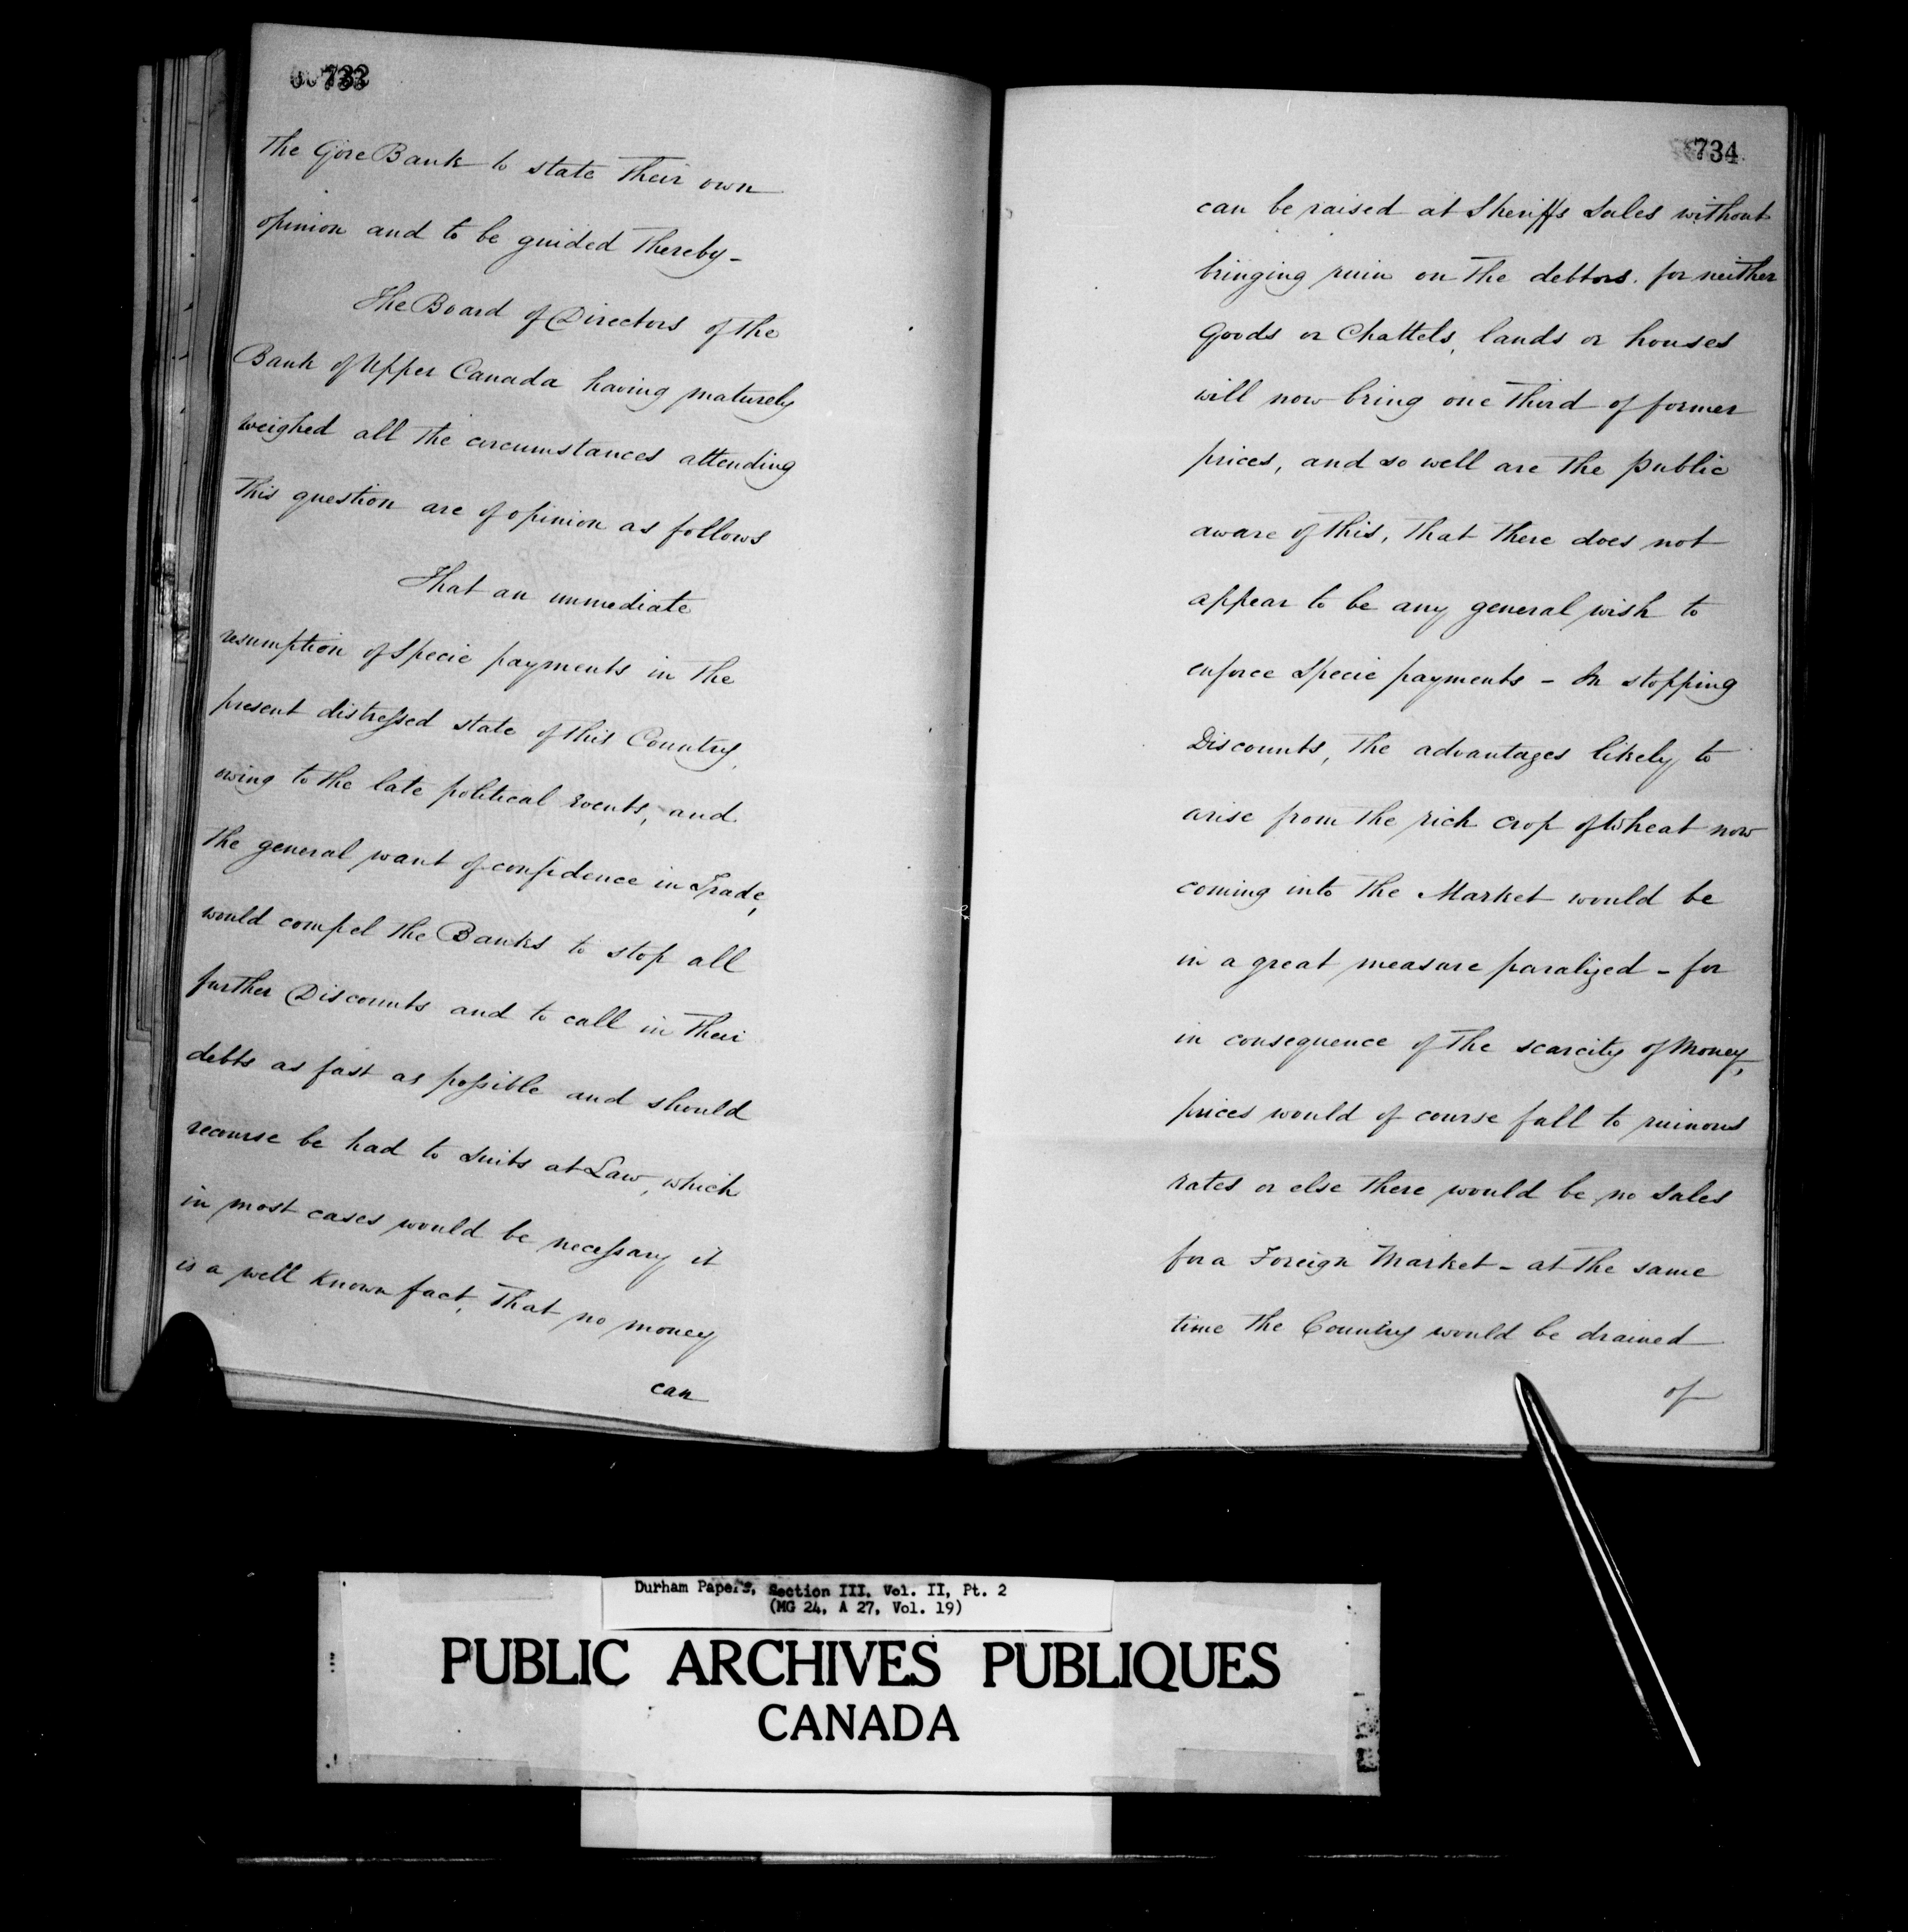 733
The Gore Bank to state their own
opinion and to be guided thereby -
The Board of Directors of the
Bank of Upper Canada having maturely
weighed all the circumstances attending
this question are of opinion as follows
That an immediate
resumption of Specie payments in the
present distressed state of this Country,
owing to the late political events, and
the general want of confidence in Trade,
would compel the Banks to stop all
further Discounts and to call in their
debts as fast as possible and should
recourse be had to Suits at Law, which
in most cases would be necessary it
is a well known fact, that no money
can
734
can be raised at Sheriffs Sales without
bringing ruin on the debtors. for neither
Goods or Chattels, lands or houses
will now bring one third of former
prices, and so well are the public
aware of this, that there does not
appear to be any general wish to
enforce Specie payments - In stopping
Discounts, the advantages likely to
arise from the rich crop of Wheat now
coming into the Market would be
in a great measure paralized - for
in consequence of the scarcity of Money,
prices would of course fall to ruinous
rates or else there would be no Sales
for a Foreign Market - at the same
time the Country would be drained
of
Durham Papers, Section III, Vol. II, Pt. 2
(MG 24, A 27, Vol. 19)
PUBLIC ARCHIVES PUBLIQUES
CANADA